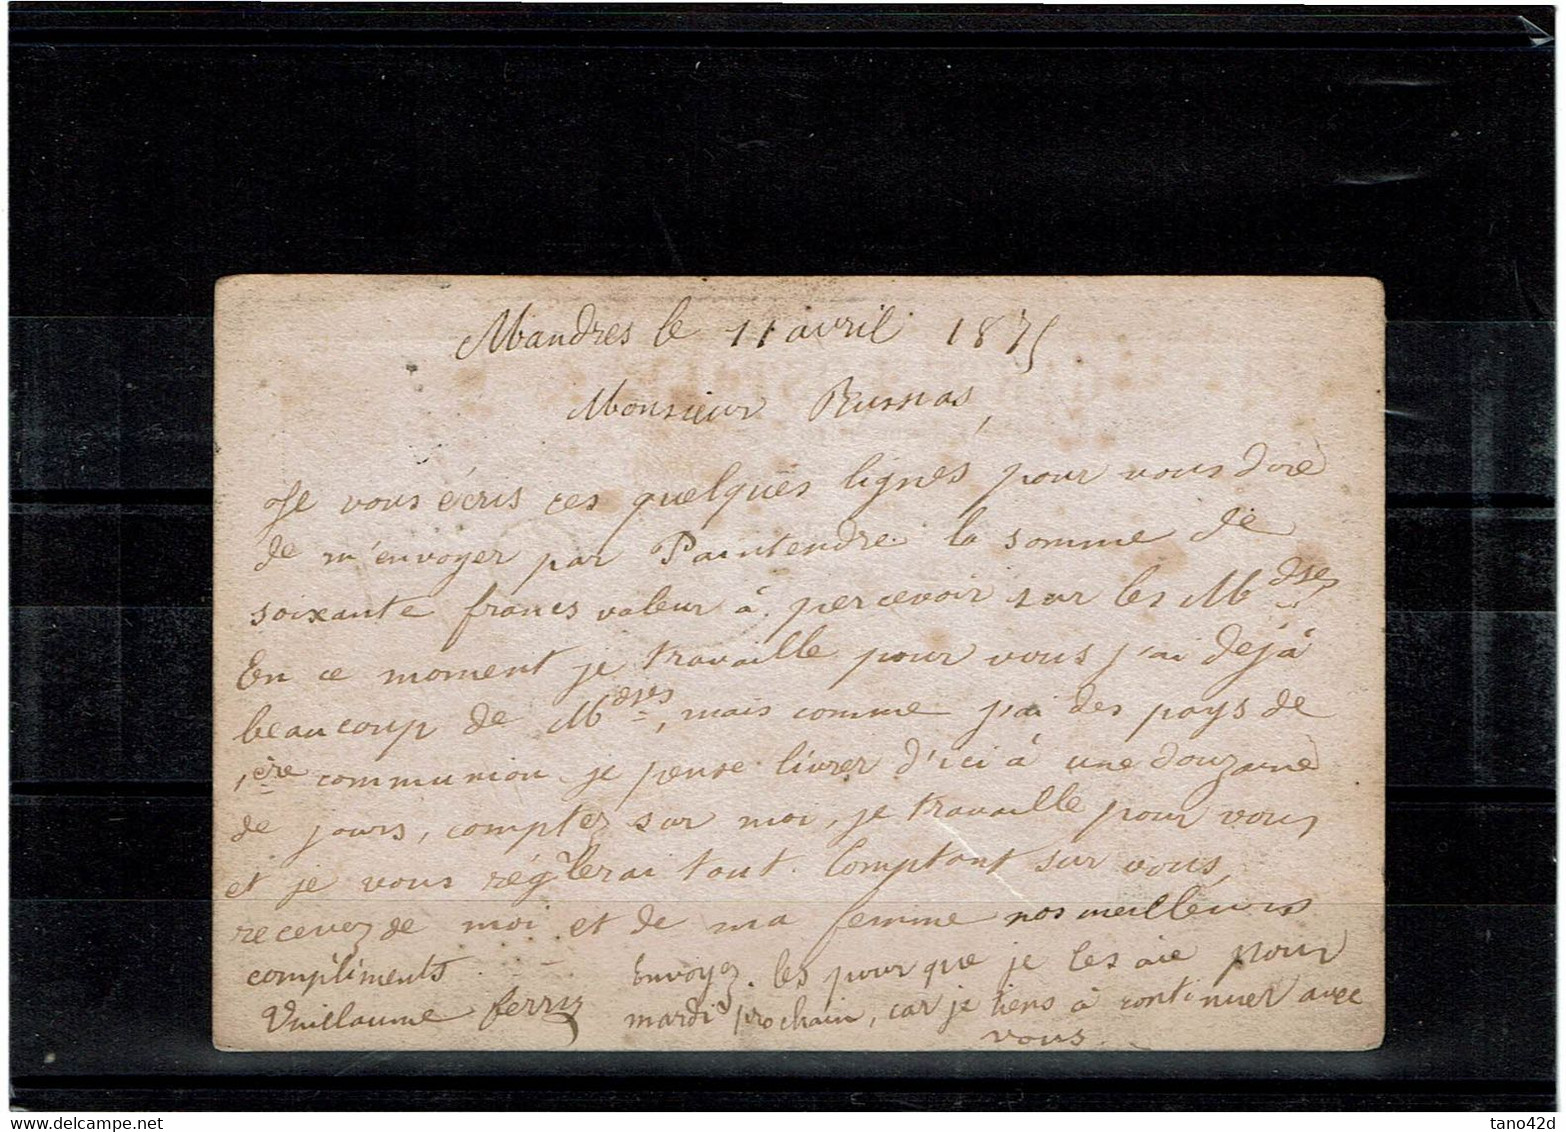 Mandres le 11 avril 1875
Monsieur Rumas,
Je vous écris ces quelques lignes pour vous dire
de m'envoyer par Paintendre la somme de
soixante francs valeur à percevoir sur les Mdses
En ce moment je travaille pour vous j'ai déjà
beaucoup de Mdses, mais comme j'ai des pays de
1ère communion je pense livrer d'ici à une douzaine
de jours, comptez sur moi, je travaille pour vous
et je vous réglerai tout. Comptant sur vous,
recevez de moi et de ma femme nos meilleurs
compliments.
Vuillaume ferry
Envoyez-les pour que je les aie pour
mardi prochain, car je tiens à continuer avec
vous.
www.delcampe.net
tano42d